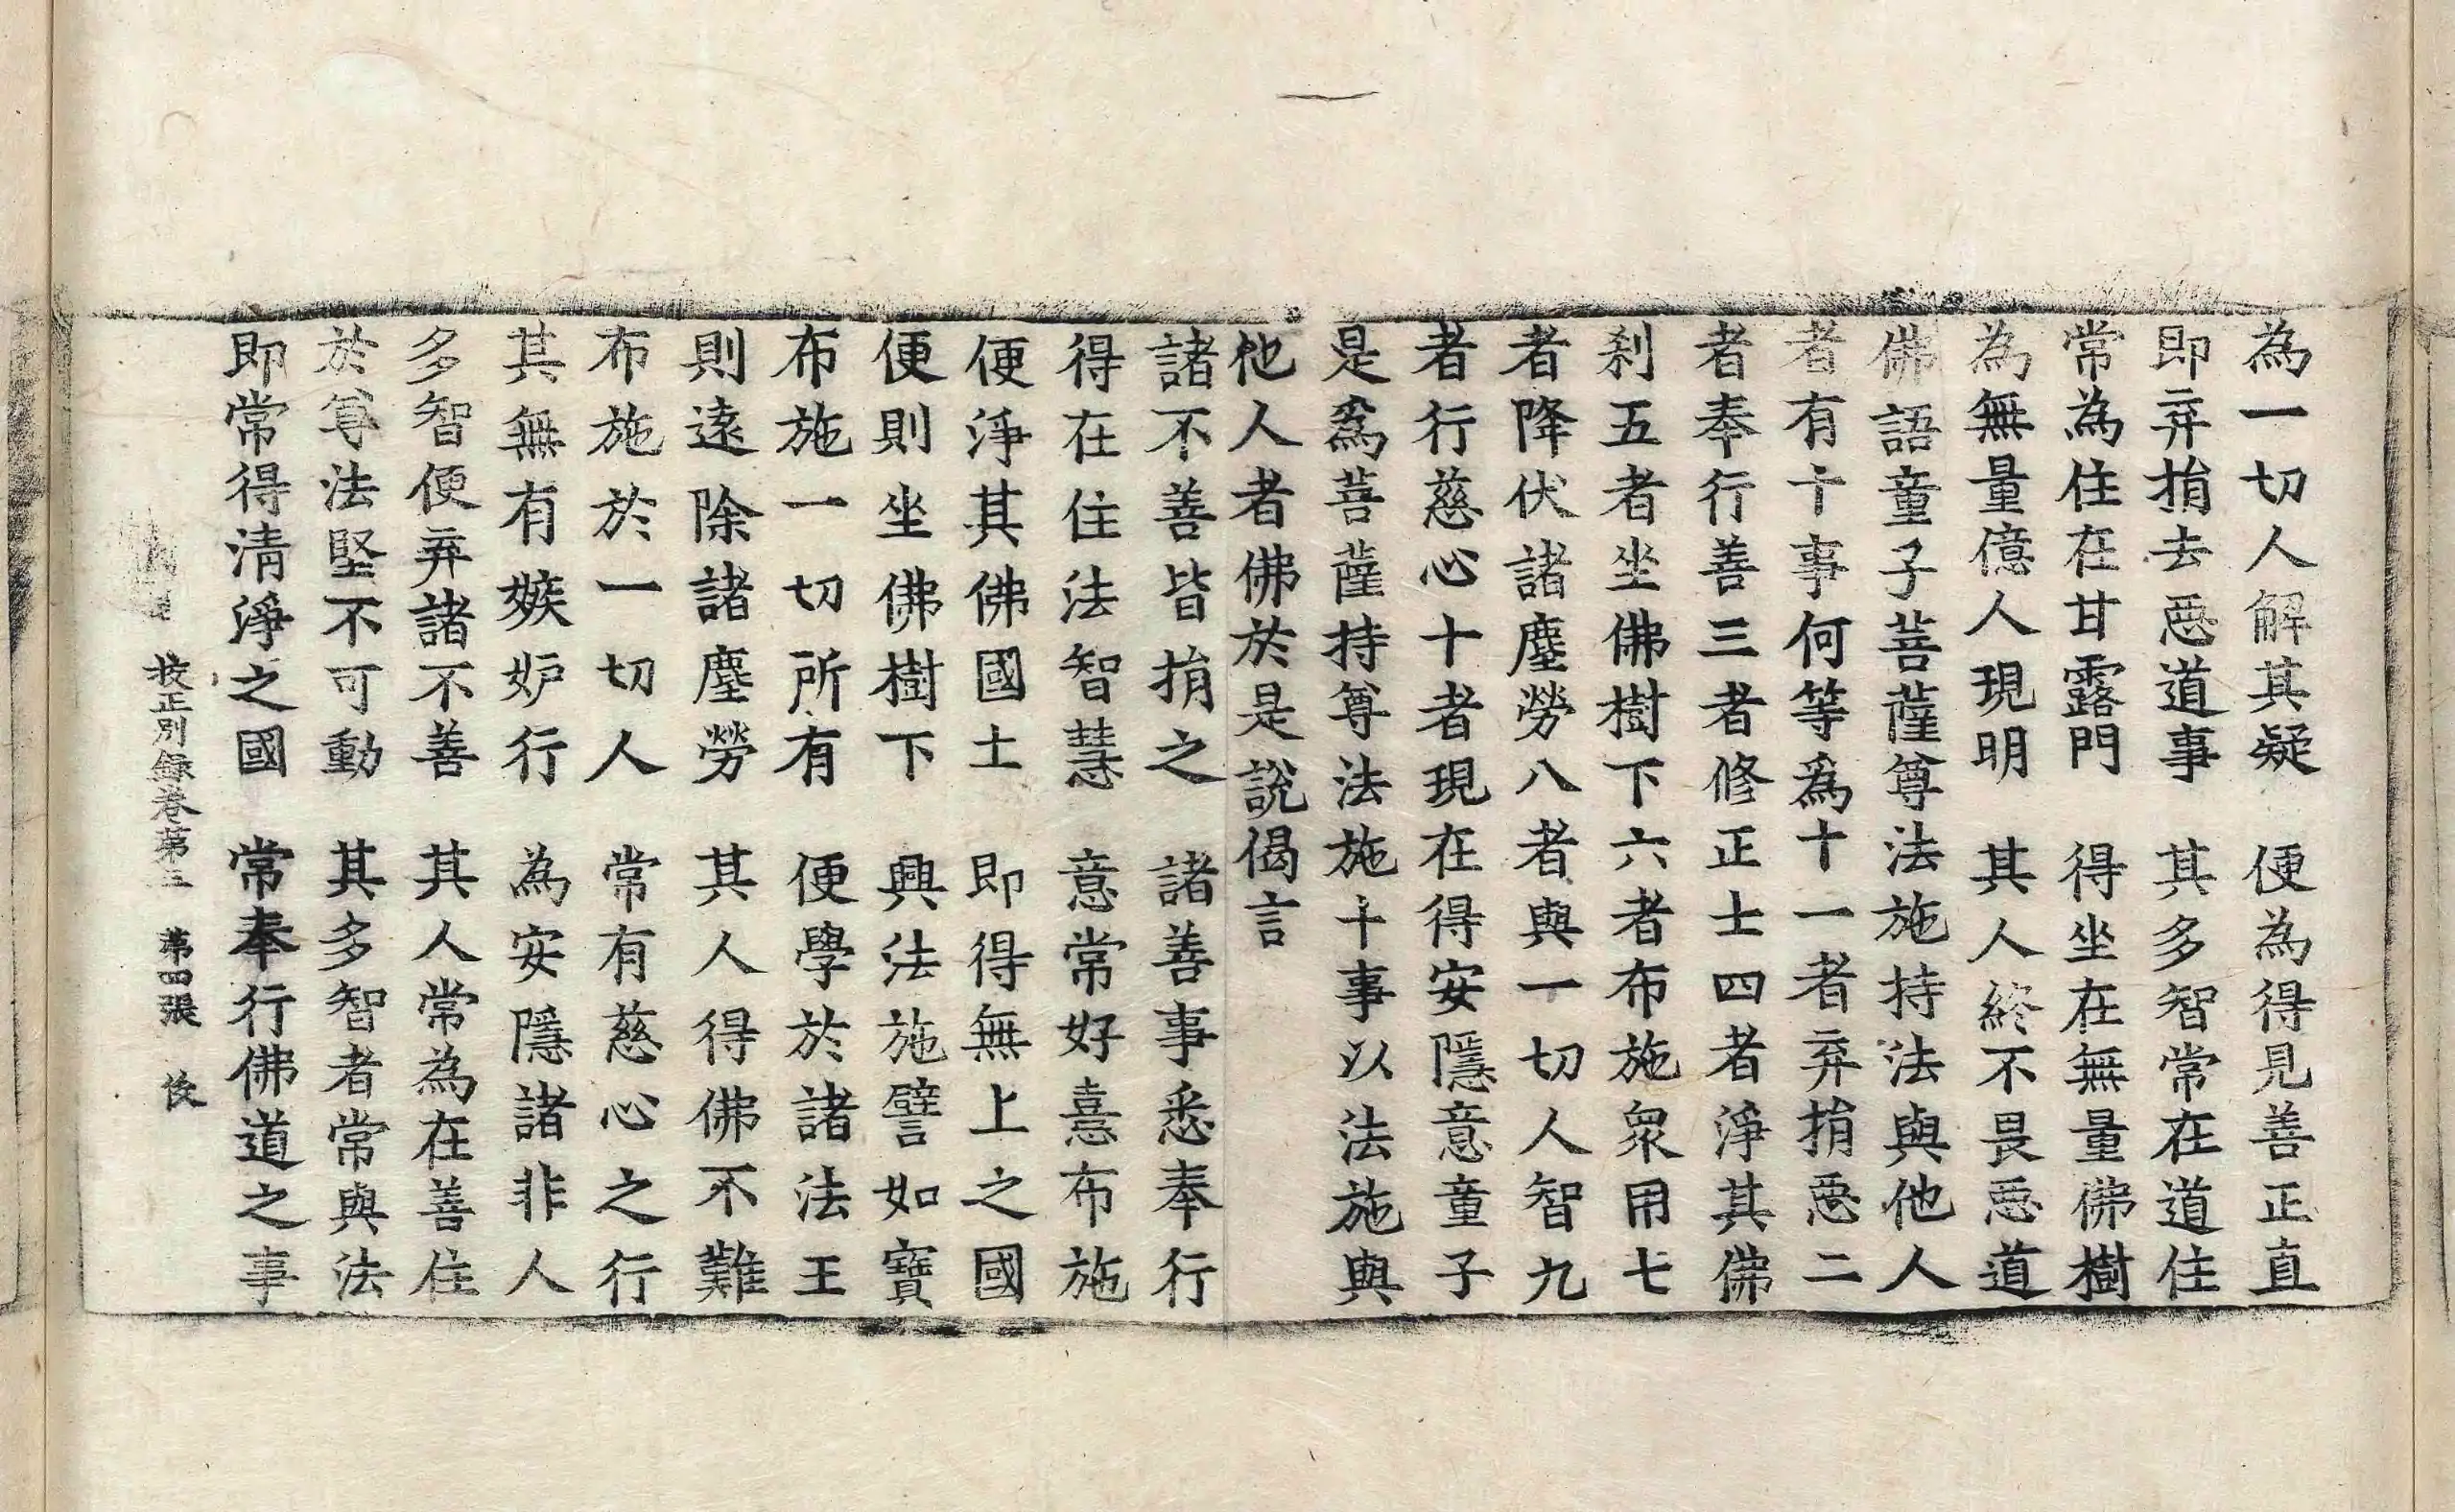 為一切人解其疑　便為得見善正直
即弃捎去惡道事　其多智常在道住
常為住在甘露門　得坐在無量佛樹
為無量億人現明　其人終不畏惡道
佛語童子菩薩尊法施持法與他人
者有十事何等爲十一者弃捎惡二
者奉行善三者修正士四者淨其佛
刹五者坐佛樹下六者布施衆用七
者降伏諸塵勞八者與一切人智九
者行慈心十者現在得安隱意童子
是爲菩薩持尊法施十事以法施與
他人者佛於是說偈言
諸不善皆捎之　諸善事悉奉行
得在住法智慧　意常好憙布施
便淨其佛國土　即得無上之國
便則坐佛樹下　興法施譬如寶
布施一切所有　便學於諸法王
則遠除諸塵勞　其人得佛不難
布施於一切人　常有慈心之行
其無有嫉妒行　為安隱諸非人
多智便弃諸不善　其人常為在善住
於尊法堅不可動　其多智者常與法
即常得清淨之國　常奉行佛道之事
挍正別錄卷苐三　苐四張　俊